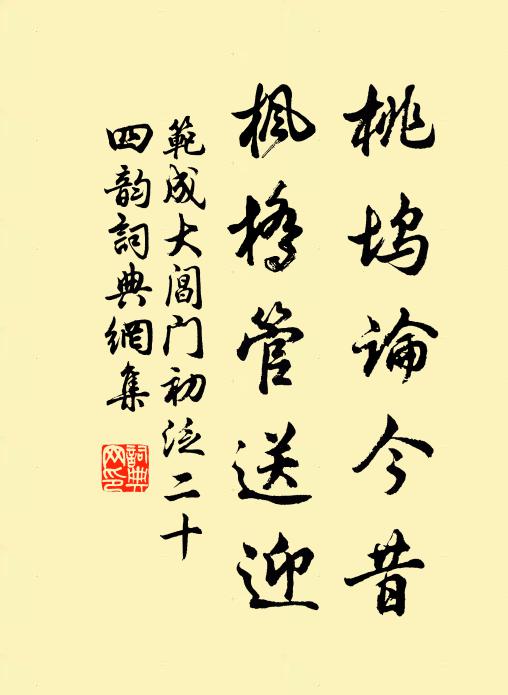 桃坞論今昔
枫橋管送迎
範成大閶门初泛二十
四韵詞典網集
詞典
网印